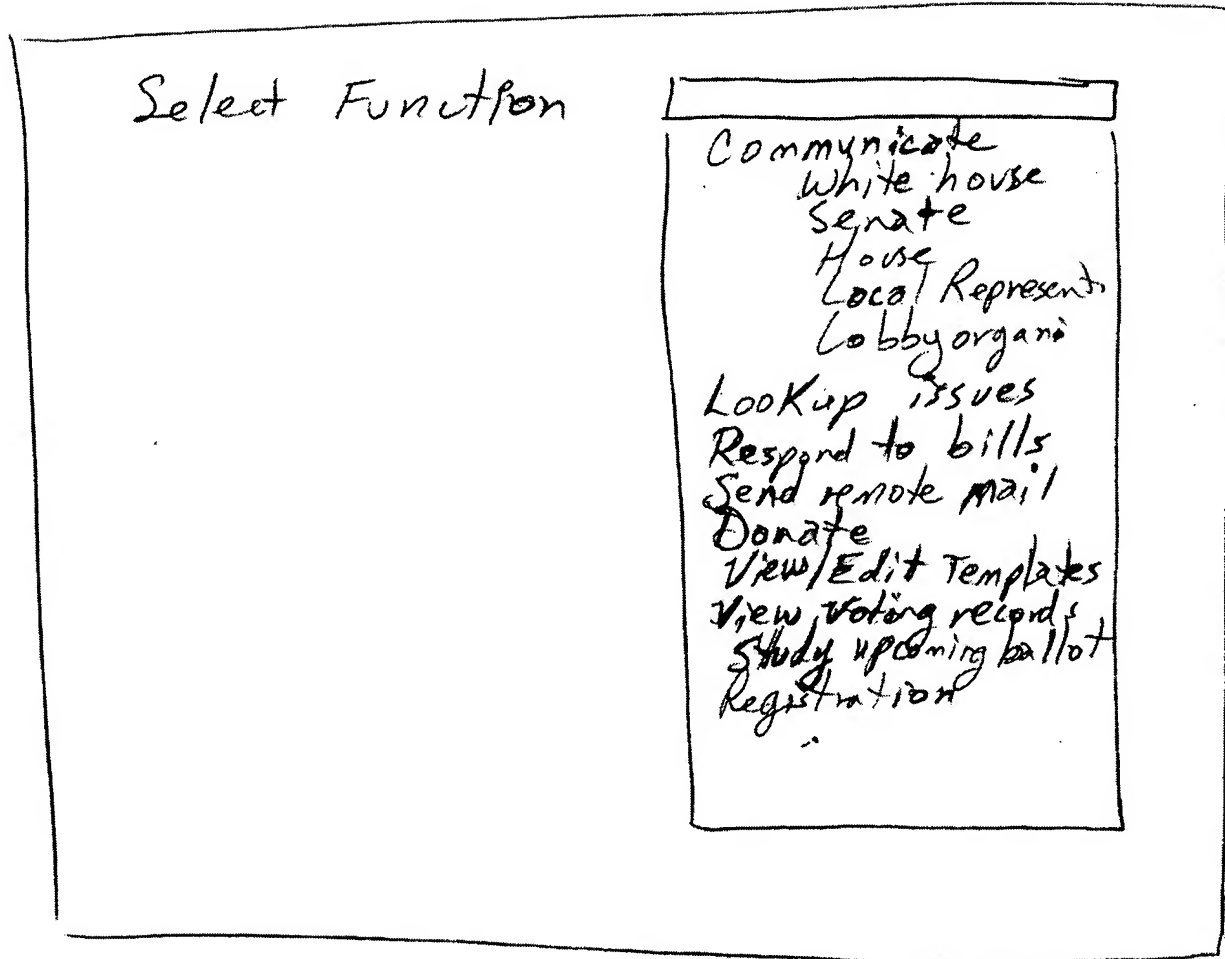 Select Function
Communicate
White house
Senate
House
Local Represent.
Lobby organi
LooKup issues
Respond to bills
Send remote mail
Donate
View/Edit Templates
View Voting records
Study upcoming ballot
Registration